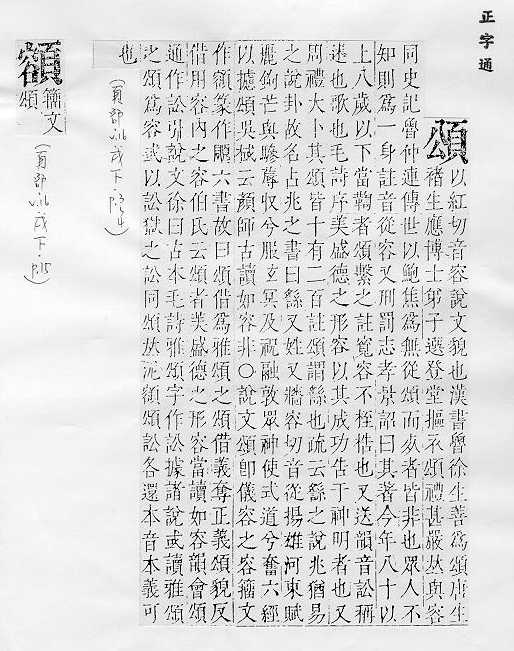 正字通
頌 以紅切音容說文貌也漢書魯徐生善爲頌唐生
褚生應博士弟子選登堂摳衣頌禮甚嚴𠀤與容
同史記魯仲連傳世以鮑焦爲無從頌而死者皆非也眾人不
知則爲一身註音從容又刑罰志孝景詔曰其著令年八十以
上八歲以下當鞫者頌繫之註寬容不桎梏也又送韻音訟稱
述也歌也毛詩序美盛德之形容以其成功告于神明者也又
周禮大卜其頌皆十有二百註頌謂繇也疏云繇之說兆猶易
之說卦故名占兆之書曰繇又姓又牆容切音從揚雄河東賦
麗鉤芒與驂蓐収兮服玄冥及祝融敦眾神使式道兮奮六經
以攄頌吳棫云顏師古讀如容非○說文頌卽儀容之容籀文
作額篆作六書故曰頌借爲雅頌之頌借義奪正義頌貌反
借用容內之容伯氏云頌者美盛德之形容當讀如容韻會頌
通作訟引說文徐曰古本毛詩雅頌字作訟據諸說或讀雅頌
之頌爲容或以訟獄之訟同頌𠀤泥額頌訟各還本音本義可
也
(頁部 戌下
額 籀文
頌
(頁部 戌下 P.15)